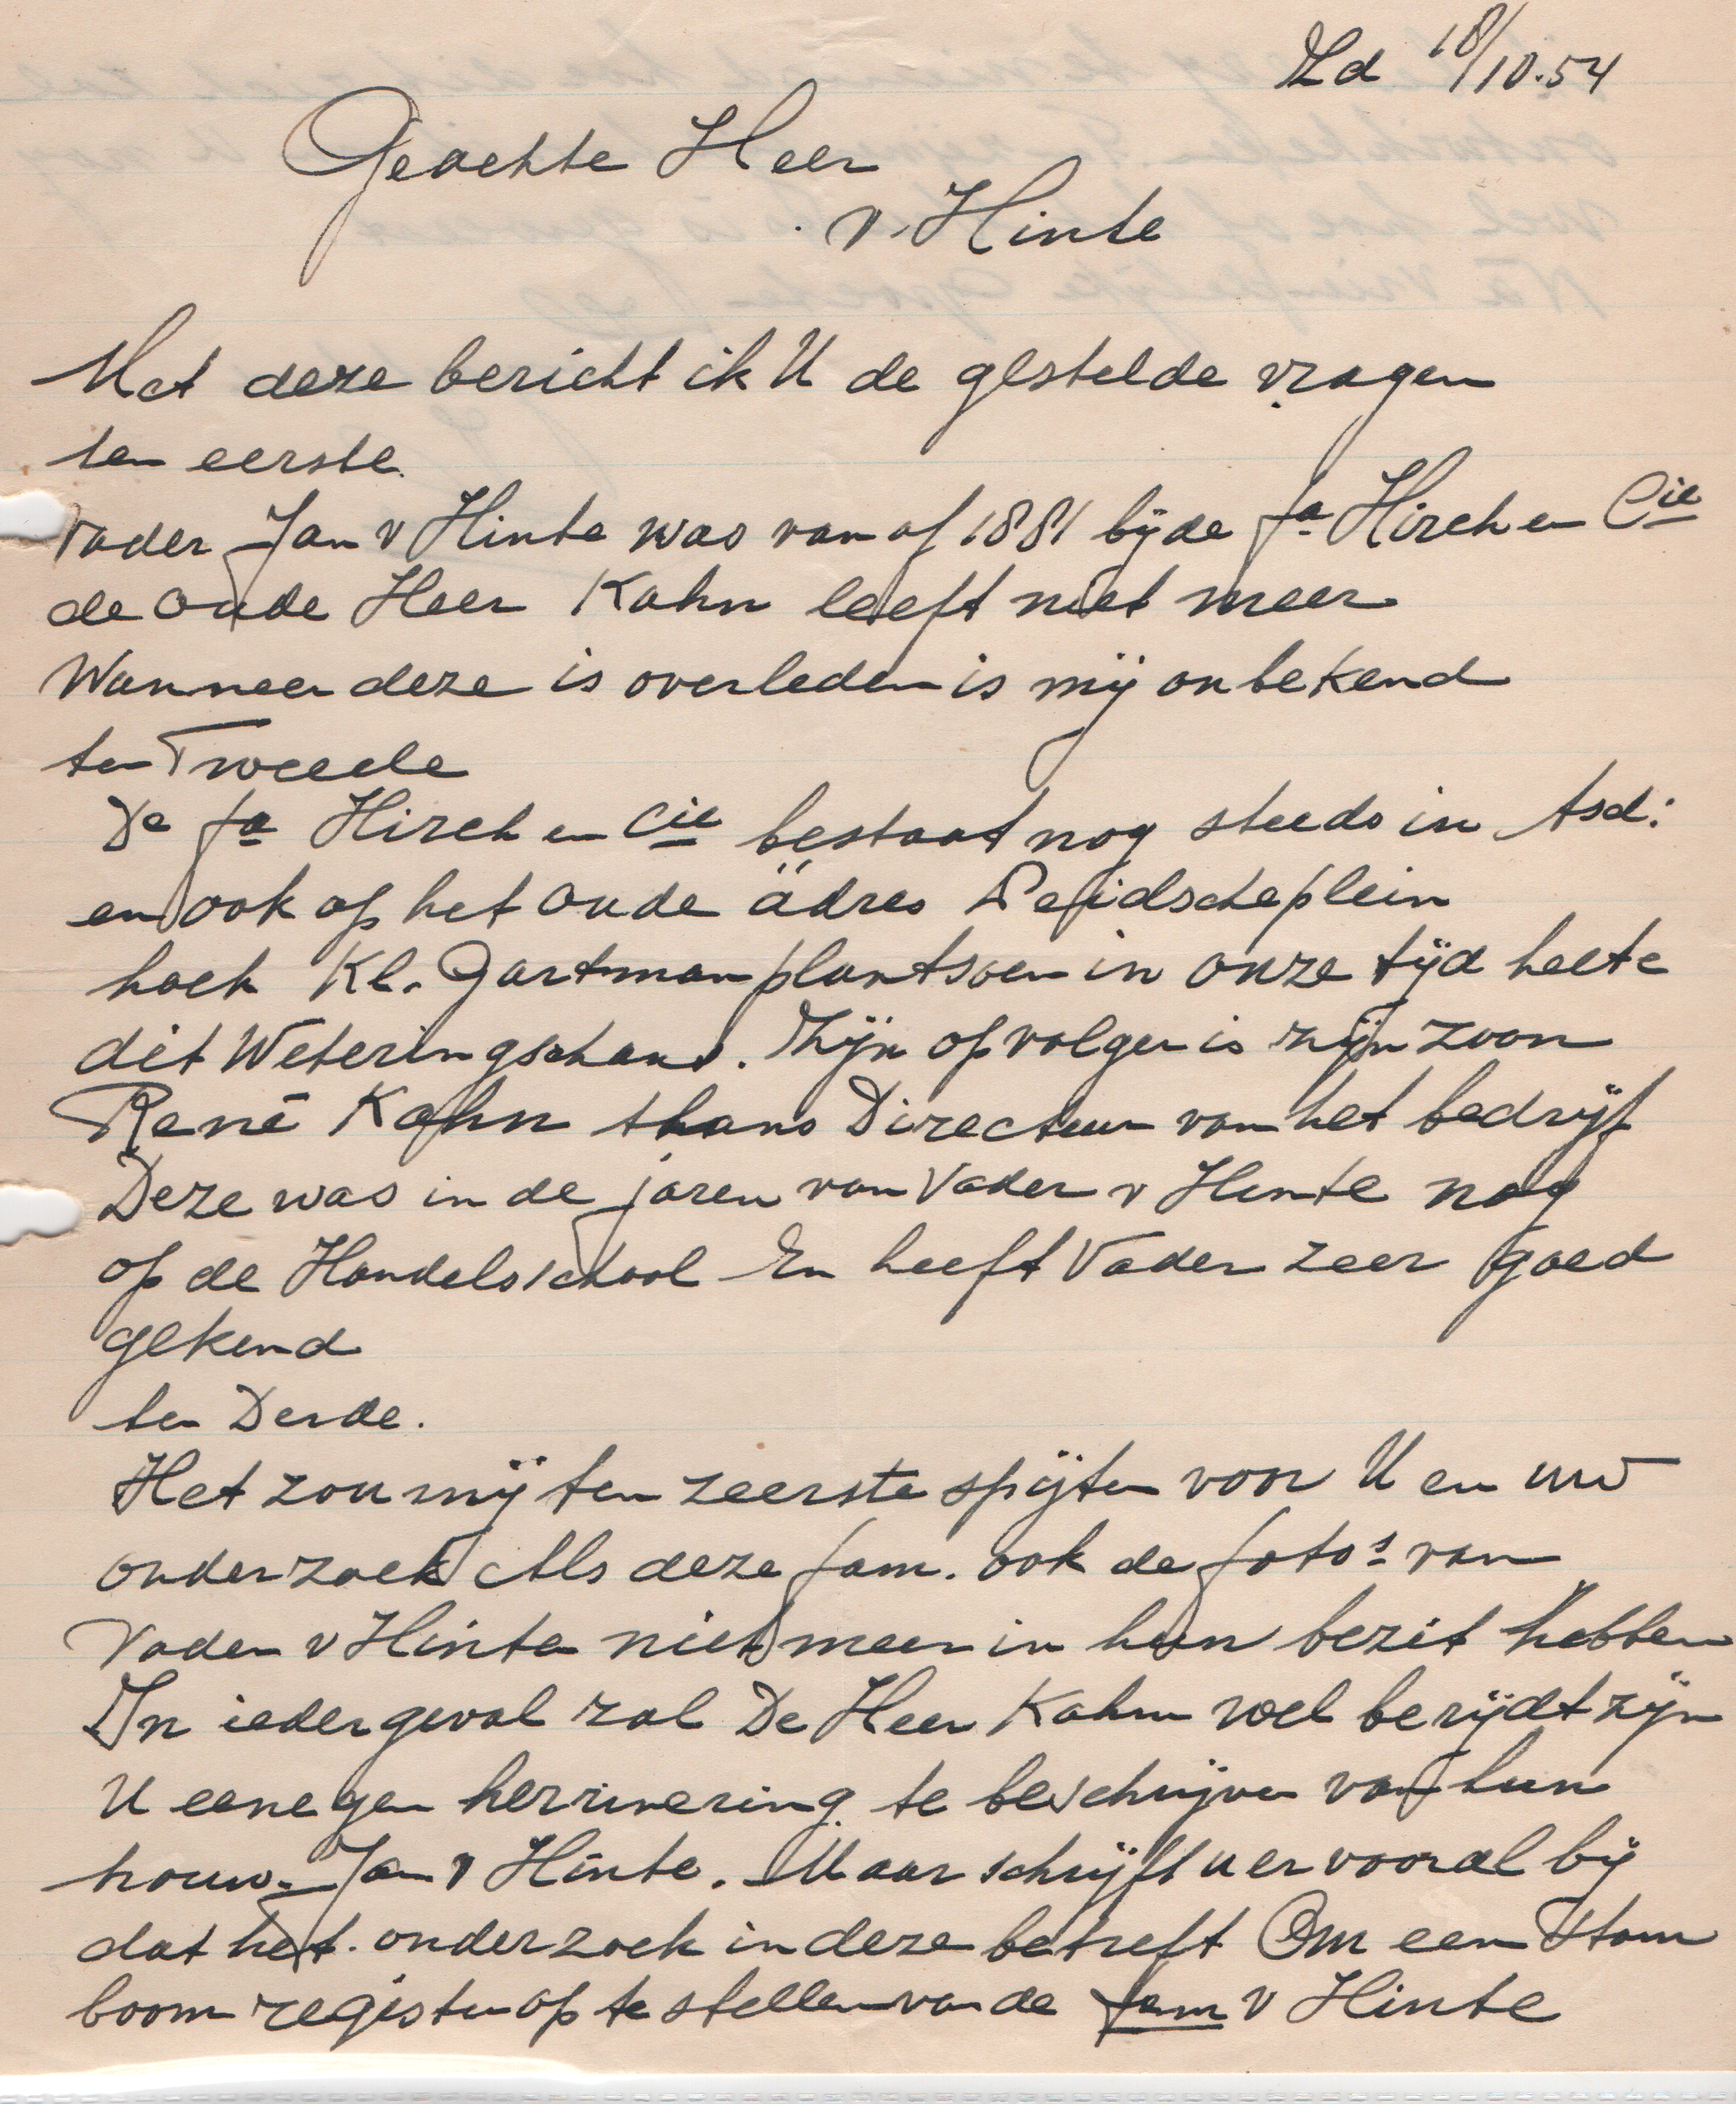 Zd 18/10.54
Geachte Heer
v. Hinte
Met deze bericht ik U de gestelde vragen
ten eerste.
Vader Jan v Hinte was van af 1881 bij de fa Hirch en Cie
de oude Heer Kahn leeft niet meer
Wanneer deze is overleden is mij onbekend
ten Tweede
De fa Hirch en Cie bestaat nog steeds in Asd:
en ook op het oude adres Leidscheplein
hoek Kl. Gartmanplantsoen in onze tijd heete
dit Weteringschans. Zijn opvolger is zijn zoon
René Kahn thans Directeur van het bedrijf
Deze was in de jaren van Vader v Hinte nog
op de Handelsschool En heeft Vader zeer goed
gekend
ten Derde.
Het zou mij ten zeerste spijten voor U en uw
onderzoek Als deze fam. ook de foto's van
Vader v Hinte niet meer in hun bezit hebben
In ieder geval zal De Heer Kahn wel berijdt zijn
U eenegen herrinering te beschrijven van hun
trouw. Jan v Hinte. Maar schrijft u er vooral bij
dat het. onderzoek in deze betreft Om een Stam
boom register op te stellen van de fam v Hinte